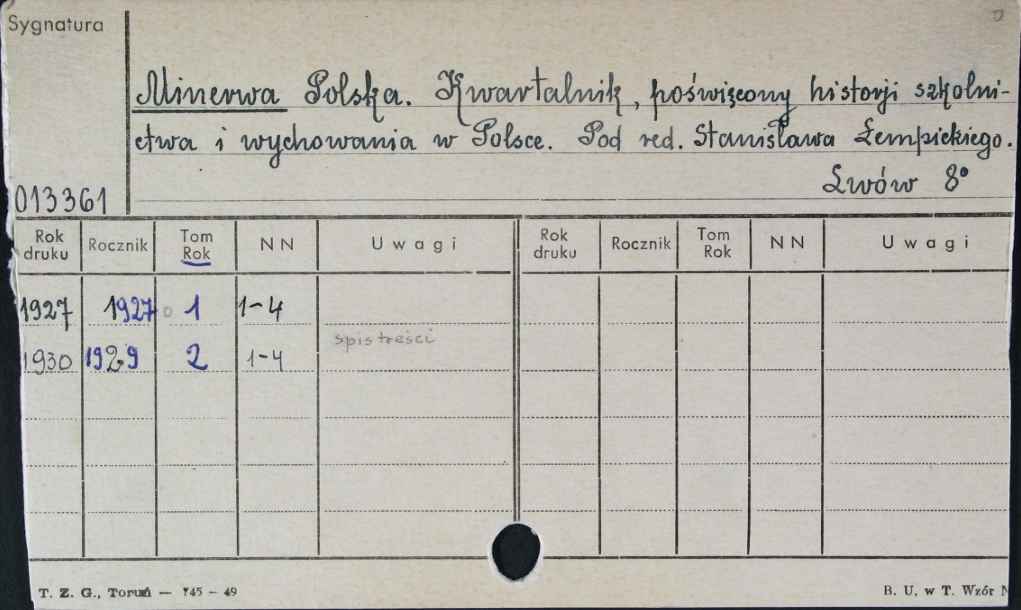 Sygnatura
Minerwa Polska. Kwartalnik, poświęcony historji szkolni-
ctwa i wychowania w Polsce. Pod red. Stanisława Łempickiego.
Lwów 8°
013361
Rok druku Rocznik Tom Rok NN Uwagi Rok druku Rocznik Tom Rok NN Uwagi
1927 1927 1 1-4
spis treści
1930 1929 2 1-4
T. Z. G., Toruń — 745 - 49 B. U. w T. Wzór N